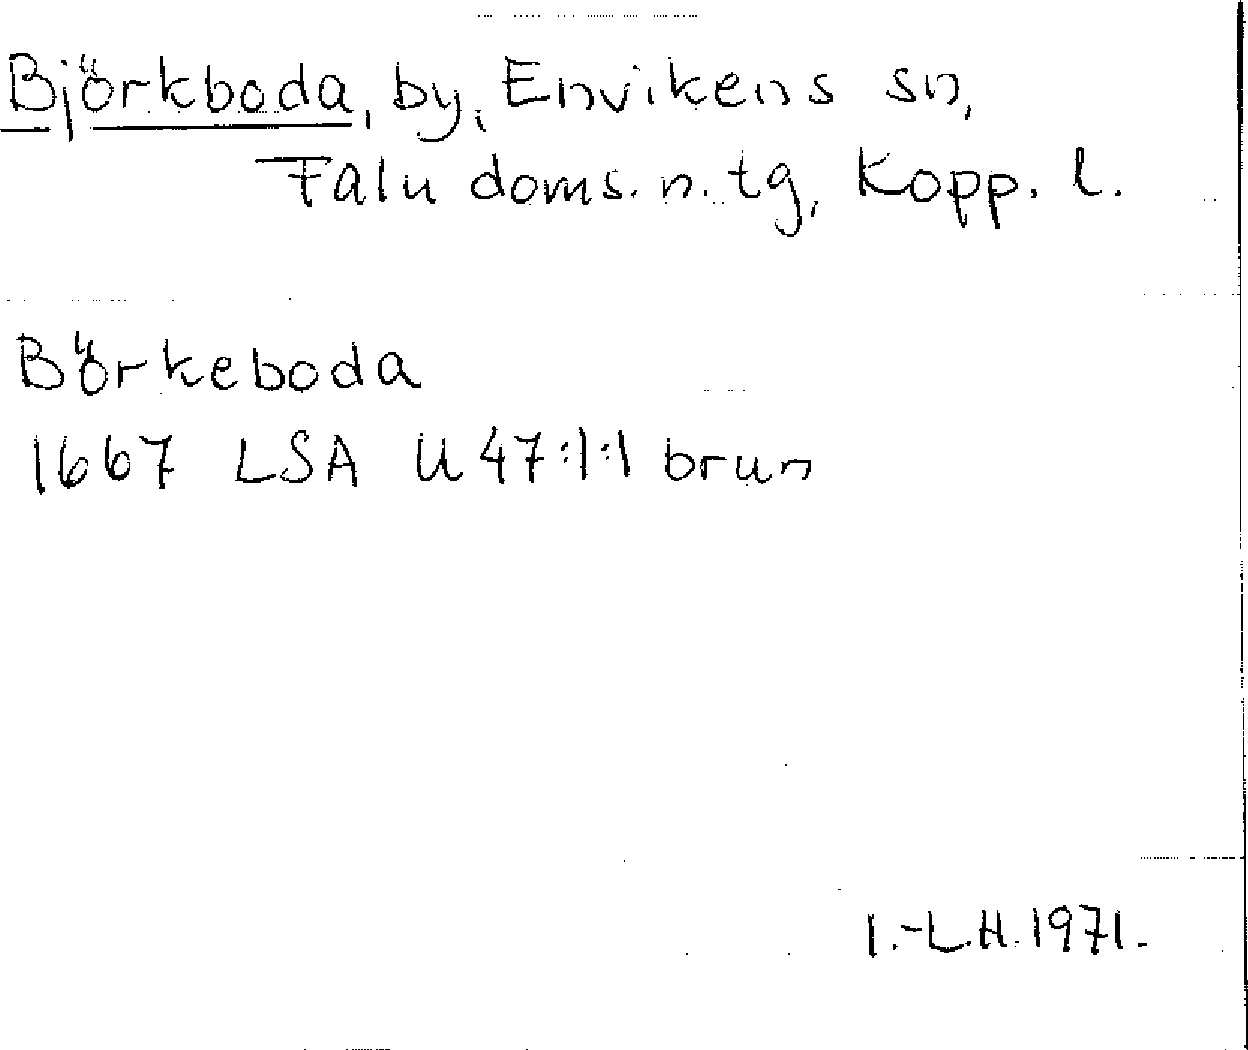 Björkboda, by, Envikens sn,
Falu doms. n. tg, Kopp. l.
Börkeboda
1667 LSA U 47:1:1 brun
I.-L.H. 1971.